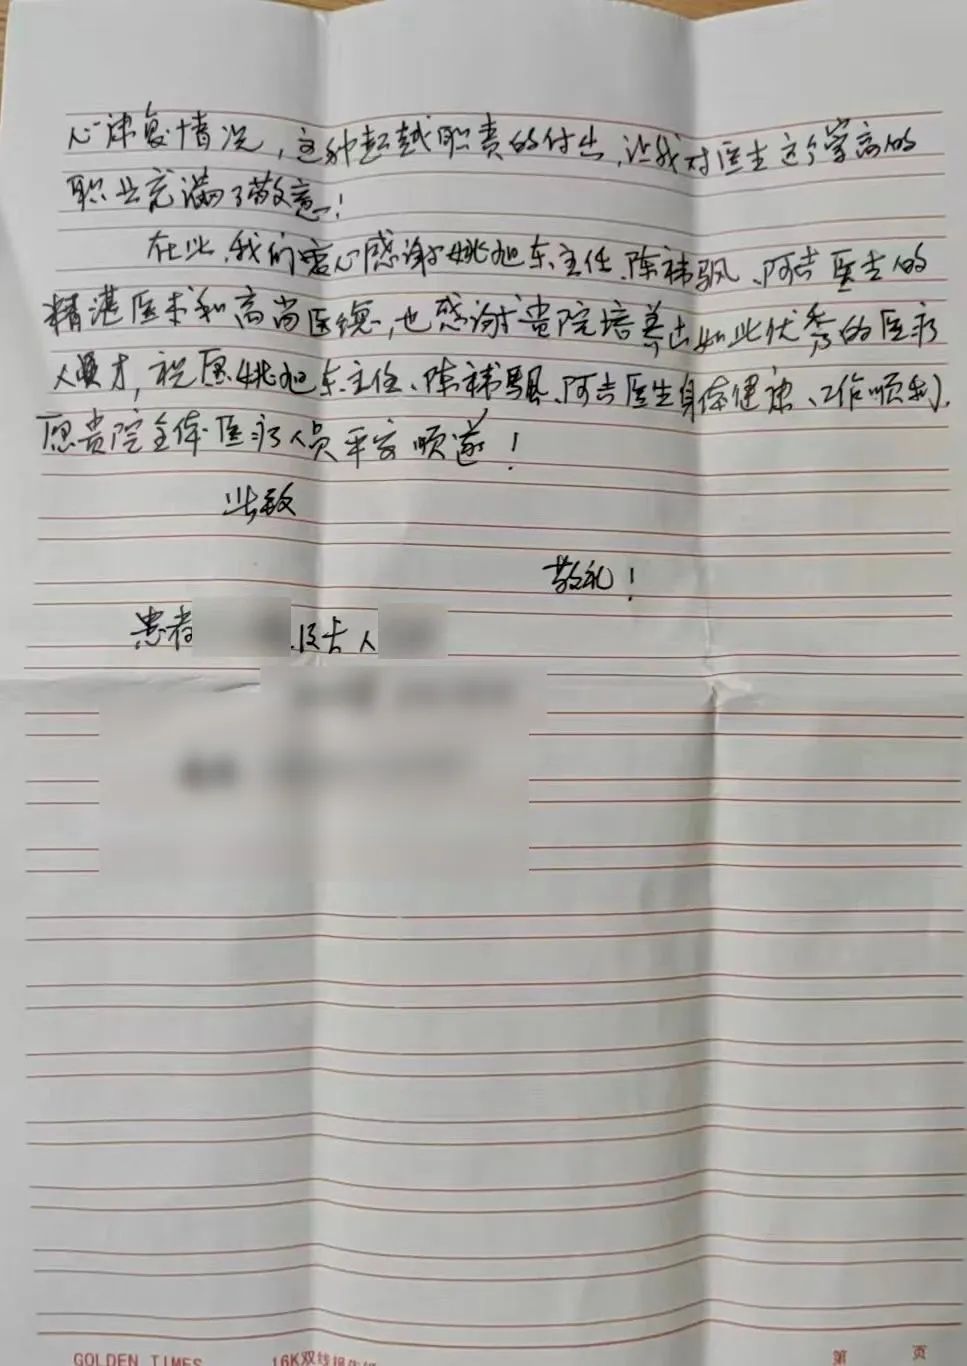 心律复情况，这种超越职责的付出，让我对医生这个崇高的
职业充满了敬意！
在此，我们衷心感谢姚旭东主任、陈祎飒、阿吉医生的
精湛医术和高尚医德，也感谢贵院培养出如此优秀的医疗
人才，祝愿姚旭东主任、陈祎飒、阿吉医生身体健康、工作顺利，
愿贵院全体医疗人员平安顺遂！
此致
敬礼！
患者
及家人
GOLDEN TIMES 16K双线报告纸
第 页